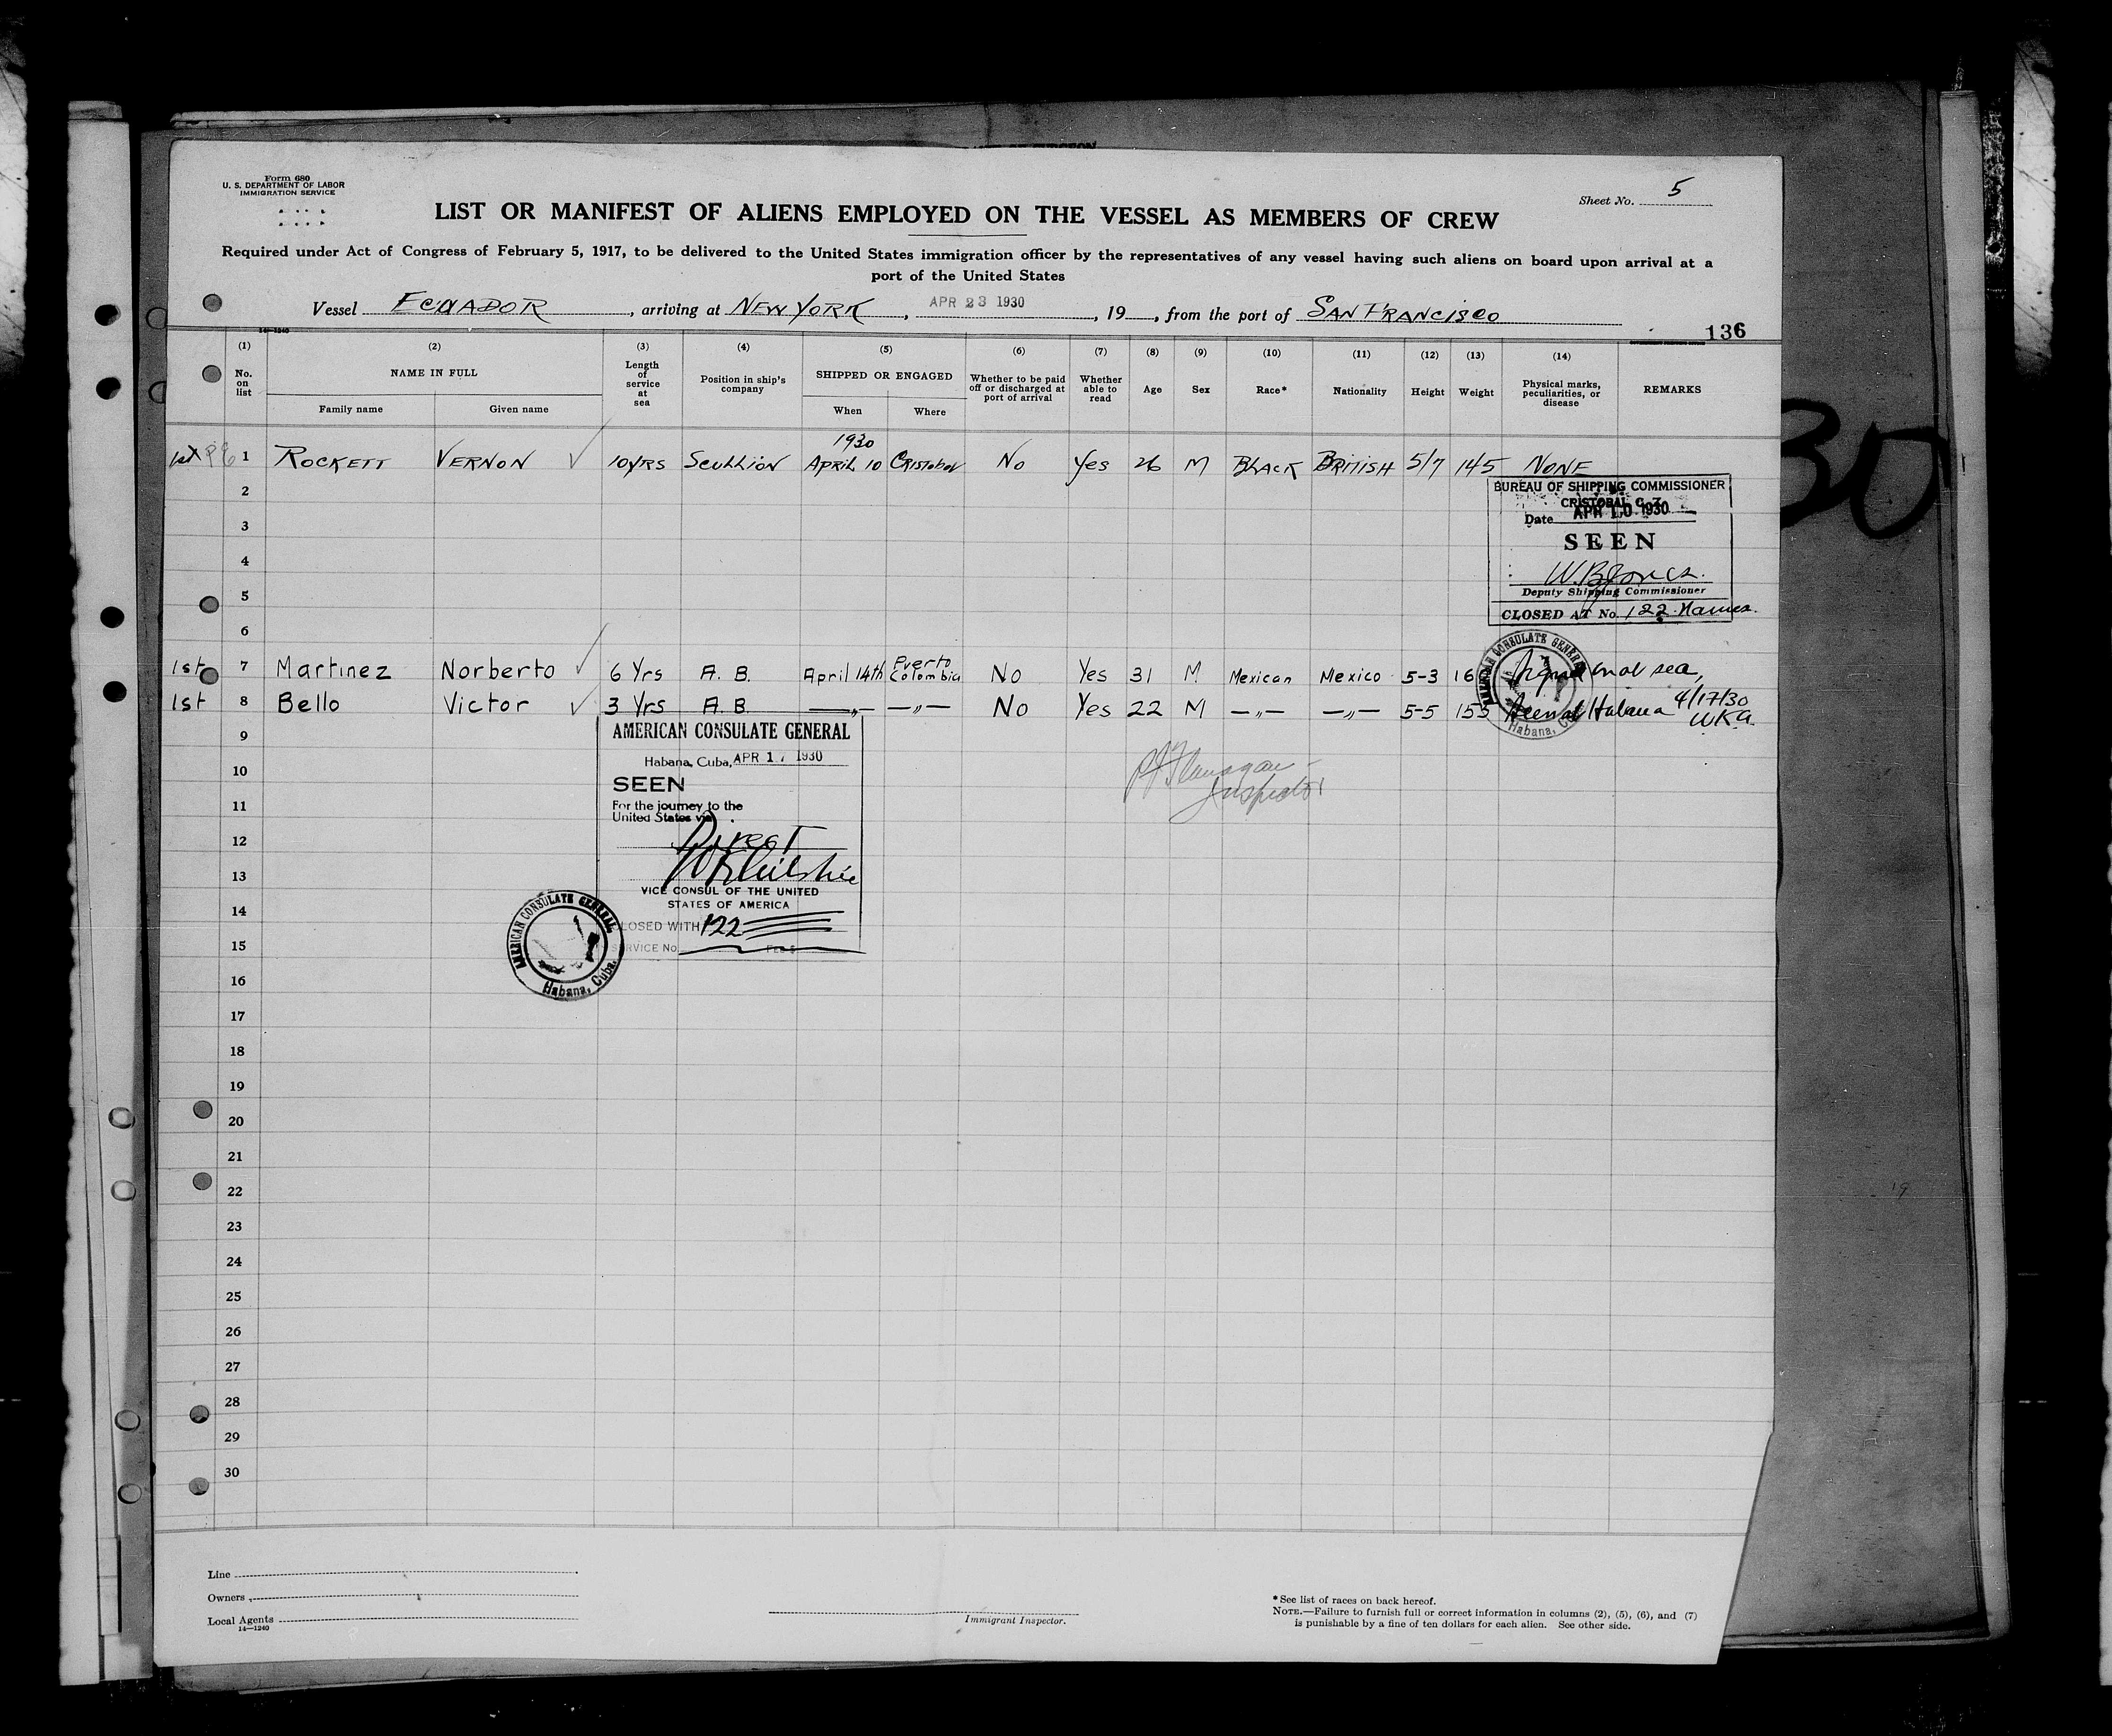 Form 680
U. S. DEPARTMENT OF LABOR
IMMIGRATION SERVICE
Sheet No. 5
LIST OR MANIFEST OF ALIENS EMPLOYED ON THE VESSEL AS MEMBERS OF CREW
Required under Act of Congress of February 5, 1917, to be delivered to the United States immigration officer by the representatives of any vessel having such aliens on board upon arrival at a
port of the United States
Vessel ECUADOR, arriving at NEW YORK, APR 23 1930, 19, from the port of SAN FRANCISCO
14-1240
136
(1) (2) (3) (4) (5) (6) (7) (8) (9) (10) (11) (12) (13) (14)
No. on list
NAME IN FULL
Family name Given name
Length of service at sea
Position in ship's company
SHIPPED OR ENGAGED
When Where
Whether to be paid off or discharged at port of arrival
Whether able to read
Age Sex Race* Nationality Height Weight
Physical marks, peculiarities, or disease
REMARKS
1930
1st 1 ROCKETT VERNON ✓ 10 YRS SCULLION APRIL 10 CRISTOBAL NO Yes 26 M BLACK BRITISH 5/7 145 NONE
2
3
4
5
6
BUREAU OF SHIPPING COMMISSIONER
CRISTOBAL C. Z.
Date APR 10 1930
SEEN
W. B. Jones
Deputy Shipping Commissioner
CLOSED AT No. 122 Names.
1st 7 Martinez Norberto ✓ 6 Yrs A. B. April 14th Puerto Colombia NO Yes 31 M Mexican Mexico 5-3 16 Signed on at sea,
1st 8 Bello Victor ✓ 3 Yrs A. B. —„— —„— NO Yes 22 M —„— —„— 5-5 155 Seen at Habana 4/17/30
W.K.A.
AMERICAN CONSULATE GENERAL
Habana, Cuba
9
10
11
12
13
14
15
16
17
18
19
20
21
22
23
24
25
26
27
28
29
30
AMERICAN CONSULATE GENERAL
Habana, Cuba, APR 17 1930
SEEN
For the journey to the
United States via
Direct
VICE CONSUL OF THE UNITED
STATES OF AMERICA
CLOSED WITH 122
SERVICE No. Fee $
AMERICAN CONSULATE GENERAL
Habana, Cuba.
Flanagan
Inspector
30
Line
Owners
Local Agents
14—1240
Immigrant Inspector.
* See list of races on back hereof.
NOTE.—Failure to furnish full or correct information in columns (2), (5), (6), and (7)
is punishable by a fine of ten dollars for each alien. See other side.